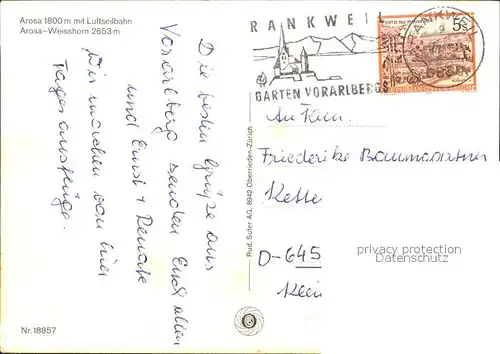 Arosa 1800 m mit Luftseilbahn
Arosa–Weisshorn 2653 m
Die besten Grüße aus
Vorarlberg senden Euch allen
und Ernst + Renate
Wir machen von hier
Tagesausflüge.
Nr. 18857
Rud. Suter AG, 8942 Oberrieden-Zürich
RANKWEIL
GARTEN VORARLBERGS
RANKWEIL
5s
An Fam.
Friederike Baumgartner
D-645
privacy protection
Datenschutz